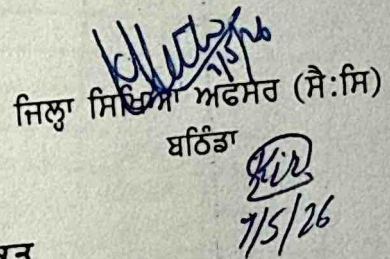 7/5/26
ਜ਼ਿਲ੍ਹਾ ਸਿੱਖਿਆ ਅਫਸਰ (ਸੈ:ਸਿ)
ਬਠਿੰਡਾ
7/5/26